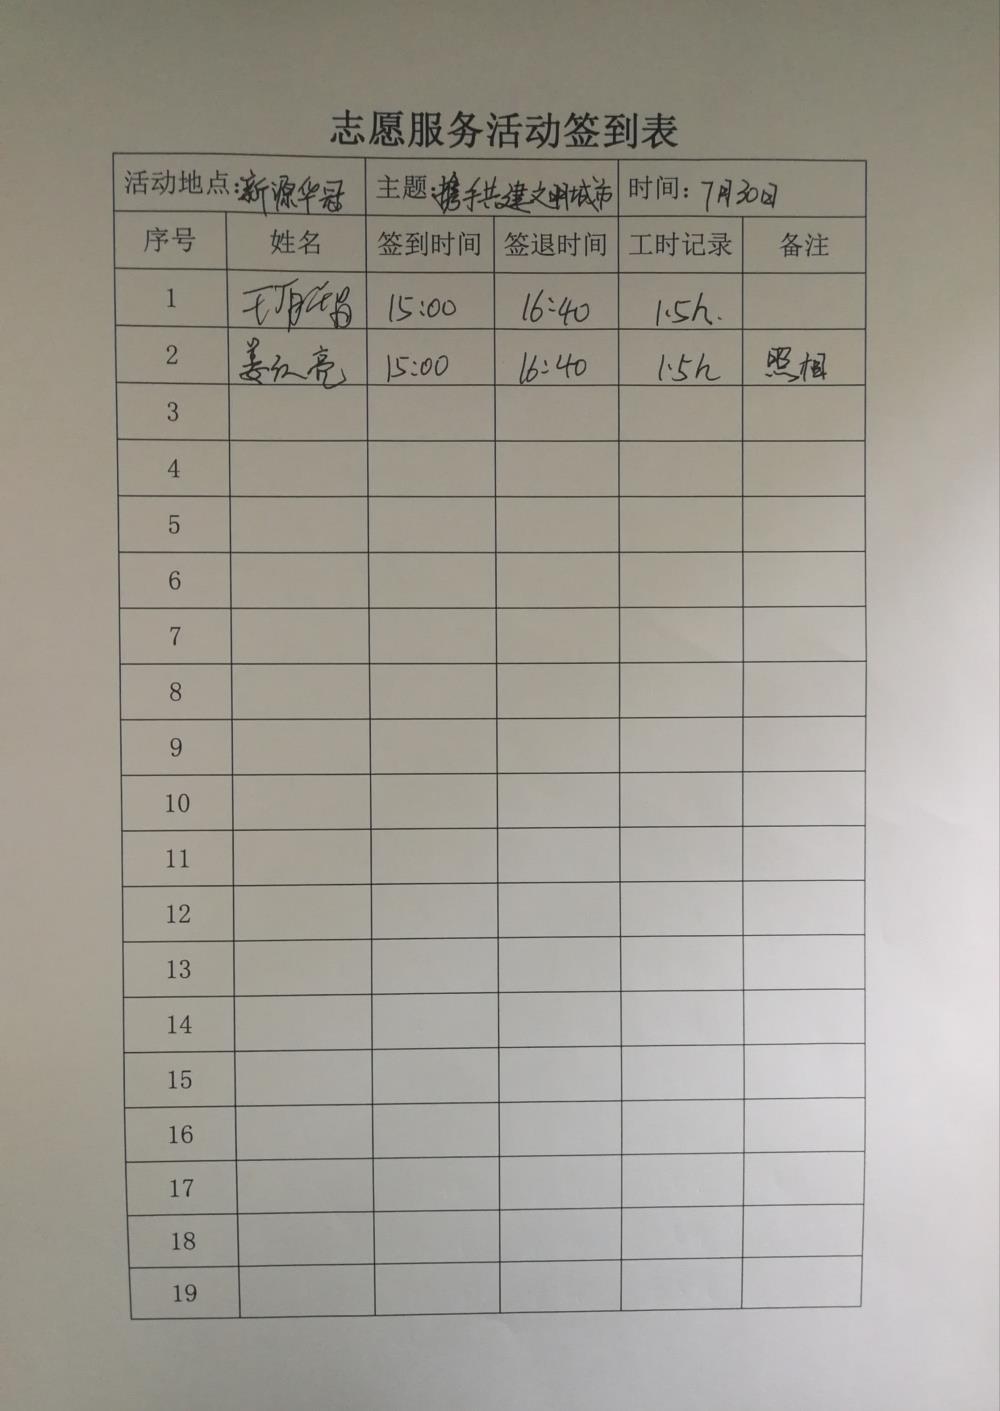 志愿服务活动签到表
活动地点:新源华冠 主题:携手共建文明城市 时间:7月30日
序号 姓名 签到时间 签退时间 工时记录 备注
1 15:00 16:40 1.5h.
2 姜红亮 15:00 16:40 1.5h 照相
3
4
5
6
7
8
9
10
11
12
13
14
15
16
17
18
19